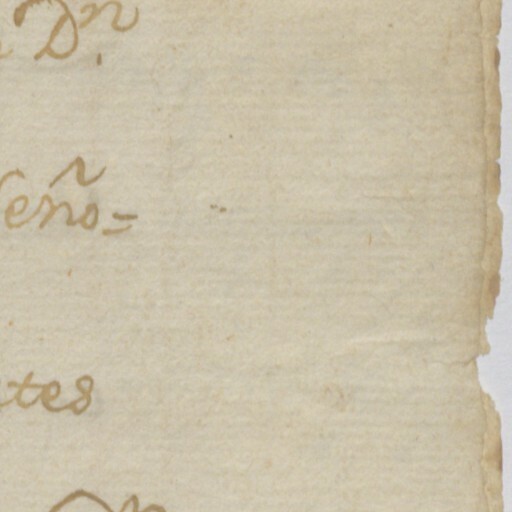 Dn
Seño=
tes